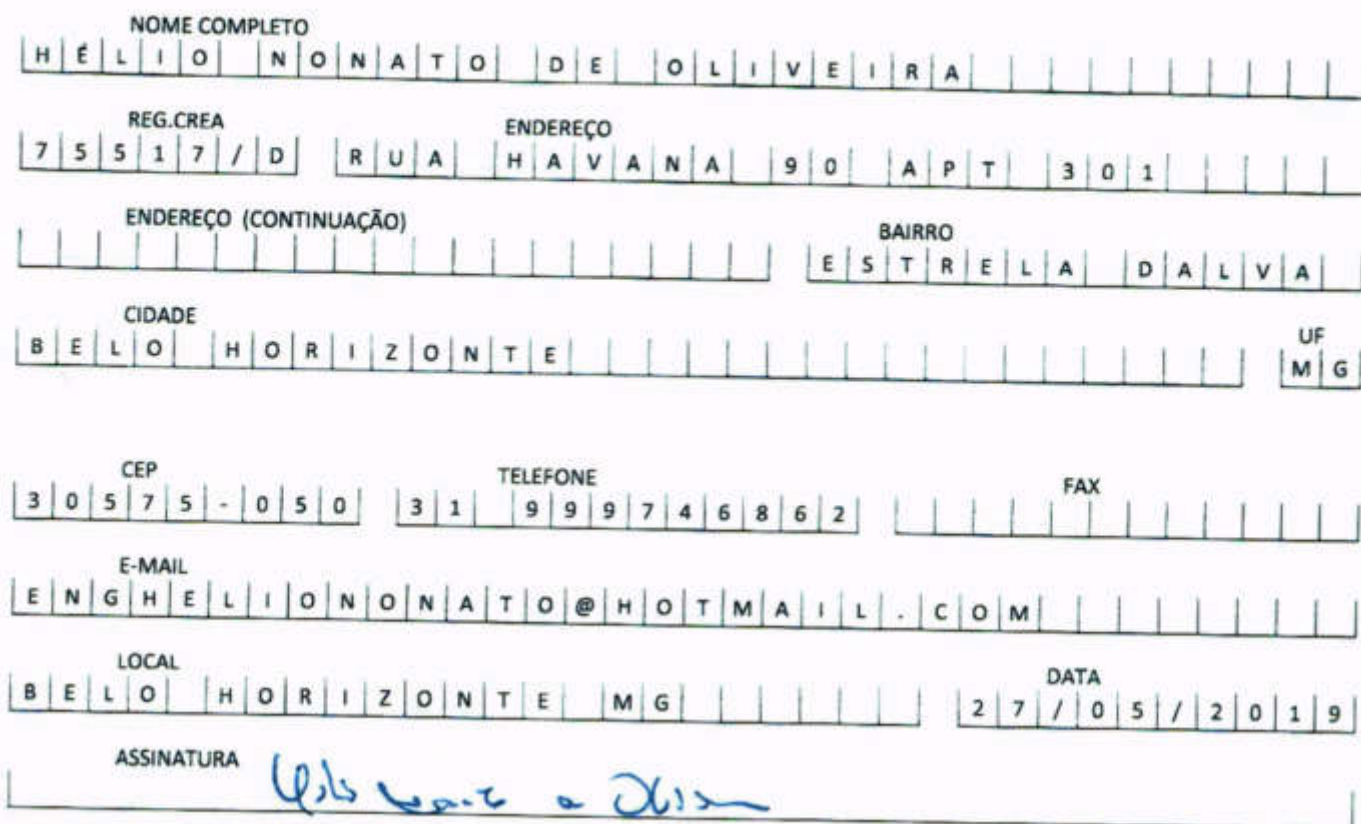 NOME COMPLETO
HÉLIO NONATO DE OLIVEIRA
REG.CREA ENDEREÇO
75517/D RUA HAVANA 90 APT 301
ENDEREÇO (CONTINUAÇÃO) BAIRRO
ESTRELA DALVA
CIDADE UF
BELO HORIZONTE MG
CEP TELEFONE FAX
30575-050 31 999746862
E-MAIL
ENGHELIONONATO@HOTMAIL.COM
LOCAL DATA
BELO HORIZONTE MG 27/05/2019
ASSINATURA